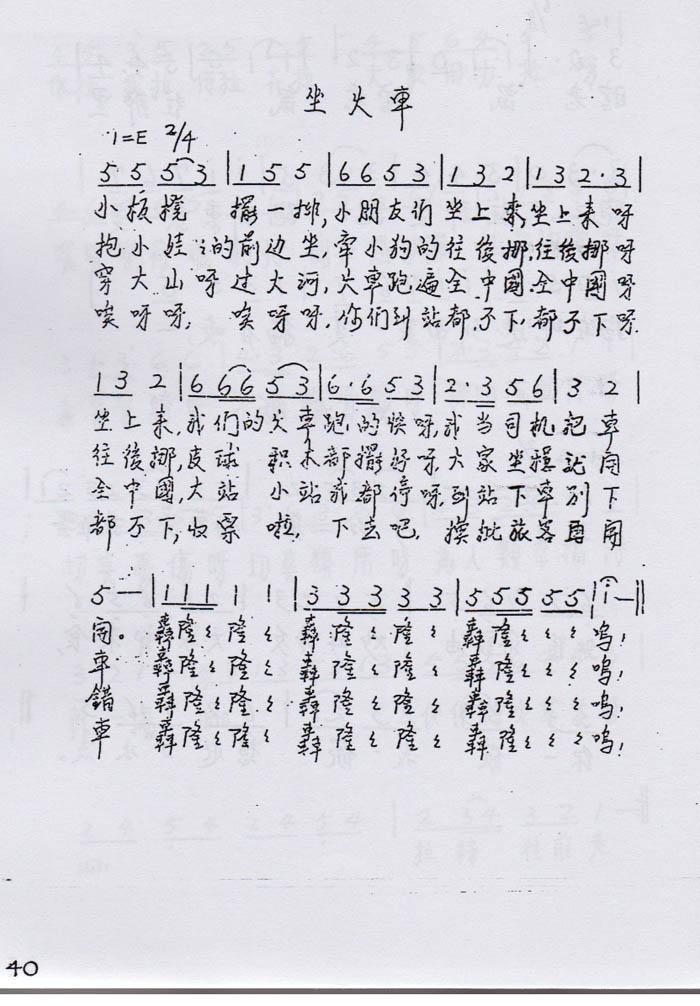 坐火車
1=E 2/4
5 5 5 3 | 1 5 5 | 6 6 5 3 | 1 3 2 | 1 3 2 · 3 |
小板櫈 擺一排,小朋友们坐上来,坐上来呀
抱小娃々的前边坐,牵小狗的往後挪,往後挪呀
穿大山呀过大河,火車跑遍全中國,全中國呀
唉呀呀, 唉呀呀,你们到站都不下,都不下呀.
1 3 2 | 6 6 6 5 3 | 6 · 6 5 3 | 2 · 3 5 6 | 3 2 |
坐上来,我们的火車跑的快呀,我当司机把車
往後挪,皮球 积木都擺好呀,大家坐穩就闹
全中國,大站 小站我都停呀,到站下車别下
都不下,收票 啦, 下去吧, 換批旅客再闹
5 — | 1 1 1 1 1 | 3 3 3 3 3 | 5 5 5 5 5 | i — ||
闹。轟隆々隆々 轟隆々隆々 轟隆々々々 呜!
車 轟隆々隆々 轟隆々隆々 轟隆々々々 呜!
錯 轟隆々隆々 轟隆々隆々 轟隆々々々 呜!
車 轟隆々隆々 轟隆々隆々 轟隆々々々 呜!
40